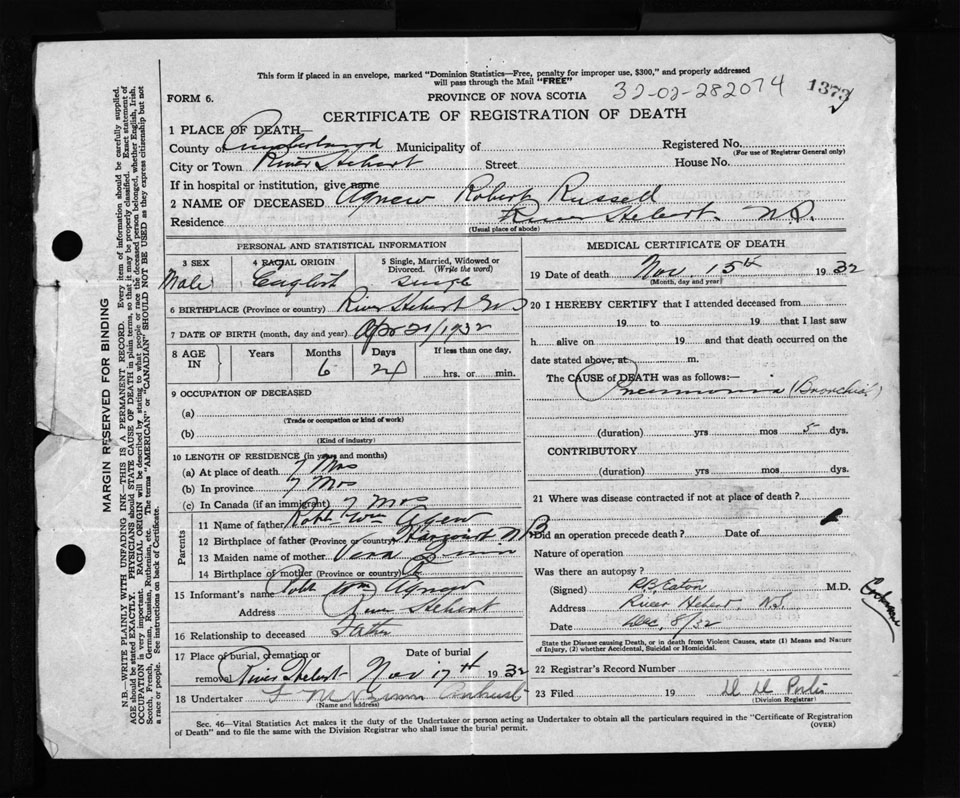 This form if placed in an envelope, marked "Dominion Statistics—Free, penalty for improper use, $300," and properly addressed
will pass through the Mail "FREE"
32-02-282074
1373
FORM 6.
PROVINCE OF NOVA SCOTIA
CERTIFICATE OF REGISTRATION OF DEATH
MARGIN RESERVED FOR BINDING
N.B.—WRITE PLAINLY WITH UNFADING INK—THIS IS A PERMANENT RECORD. Every item of information should be carefully supplied.
AGE should be stated EXACTLY. PHYSICIANS should STATE CAUSE OF DEATH in plain terms, so that it may be properly classified. Exact statement of
OCCUPATION is very important. RACIAL ORIGIN will be described by stating to what people or race the deceased person belonged, whether English, Irish,
Scotch, French, German, Russian, Ruthenian, etc. The terms "AMERICAN" or "CANADIAN" SHOULD NOT BE USED as they express citizenship but not
a race or people. See instructions on back of Certificate.
1 PLACE OF DEATH—
County of Cumberland Municipality of Registered No.
(For use of Registrar General only)
City or Town River Hebert Street House No.
If in hospital or institution, give name
2 NAME OF DECEASED Agnew Robert Russell
Residence River Hebert N.S.
(Usual place of abode)
PERSONAL AND STATISTICAL INFORMATION
3 SEX 4 RACIAL ORIGIN 5 Single, Married, Widowed or
Divorced. (Write the word)
Male English Single
6 BIRTHPLACE (Province or country) River Hebert N S
7 DATE OF BIRTH (month, day and year) Apr 21/1932
8 AGE IN Years Months Days If less than one day,
6 24 hrs. or min.
9 OCCUPATION OF DECEASED
(a)
(Trade or occupation or kind of work)
(b)
(Kind of industry)
10 LENGTH OF RESIDENCE (in years and months)
(a) At place of death 7 Mos
(b) In province 7 Mos
(c) In Canada (if an immigrant) 7 Mos
Parents
11 Name of father Robt Wm Agnew
12 Birthplace of father (Province or country) Harcourt N B
13 Maiden name of mother Vera
14 Birthplace of mother (Province or country)
15 Informant's name Robt Wm Agnew
Address River Hebert
16 Relationship to deceased Father
17 Place of burial, cremation or Date of burial
removal River Hebert Nov 17th 1932
18 Undertaker Amherst
(Name and address)
MEDICAL CERTIFICATE OF DEATH
19 Date of death Nov. 15th 1932
(Month, day and year)
20 I HEREBY CERTIFY that I attended deceased from
19 to 19 that I last saw
h alive on 19 and that death occurred on the
date stated above, at m.
The CAUSE of DEATH was as follows:—
Pneumonia (Bronchial)
(duration) yrs mos 5 dys.
CONTRIBUTORY
(duration) yrs mos dys.
21 Where was disease contracted if not at place of death?
Did an operation precede death? Date of
Nature of operation
Was there an autopsy?
(Signed) P.B. Eaton M.D.
Address River Hebert, N.S.
Date Dec, 8/32
State the Disease causing Death, or in death from Violent Causes, state (1) Means and Nature
of Injury, (2) whether Accidental, Suicidal or Homicidal.
22 Registrar's Record Number
23 Filed 19
(Division Registrar)
Sec. 46—Vital Statistics Act makes it the duty of the Undertaker or person acting as Undertaker to obtain all the particulars required in the "Certificate of Registration
of Death" and to file the same with the Division Registrar who shall issue the burial permit.
(OVER)